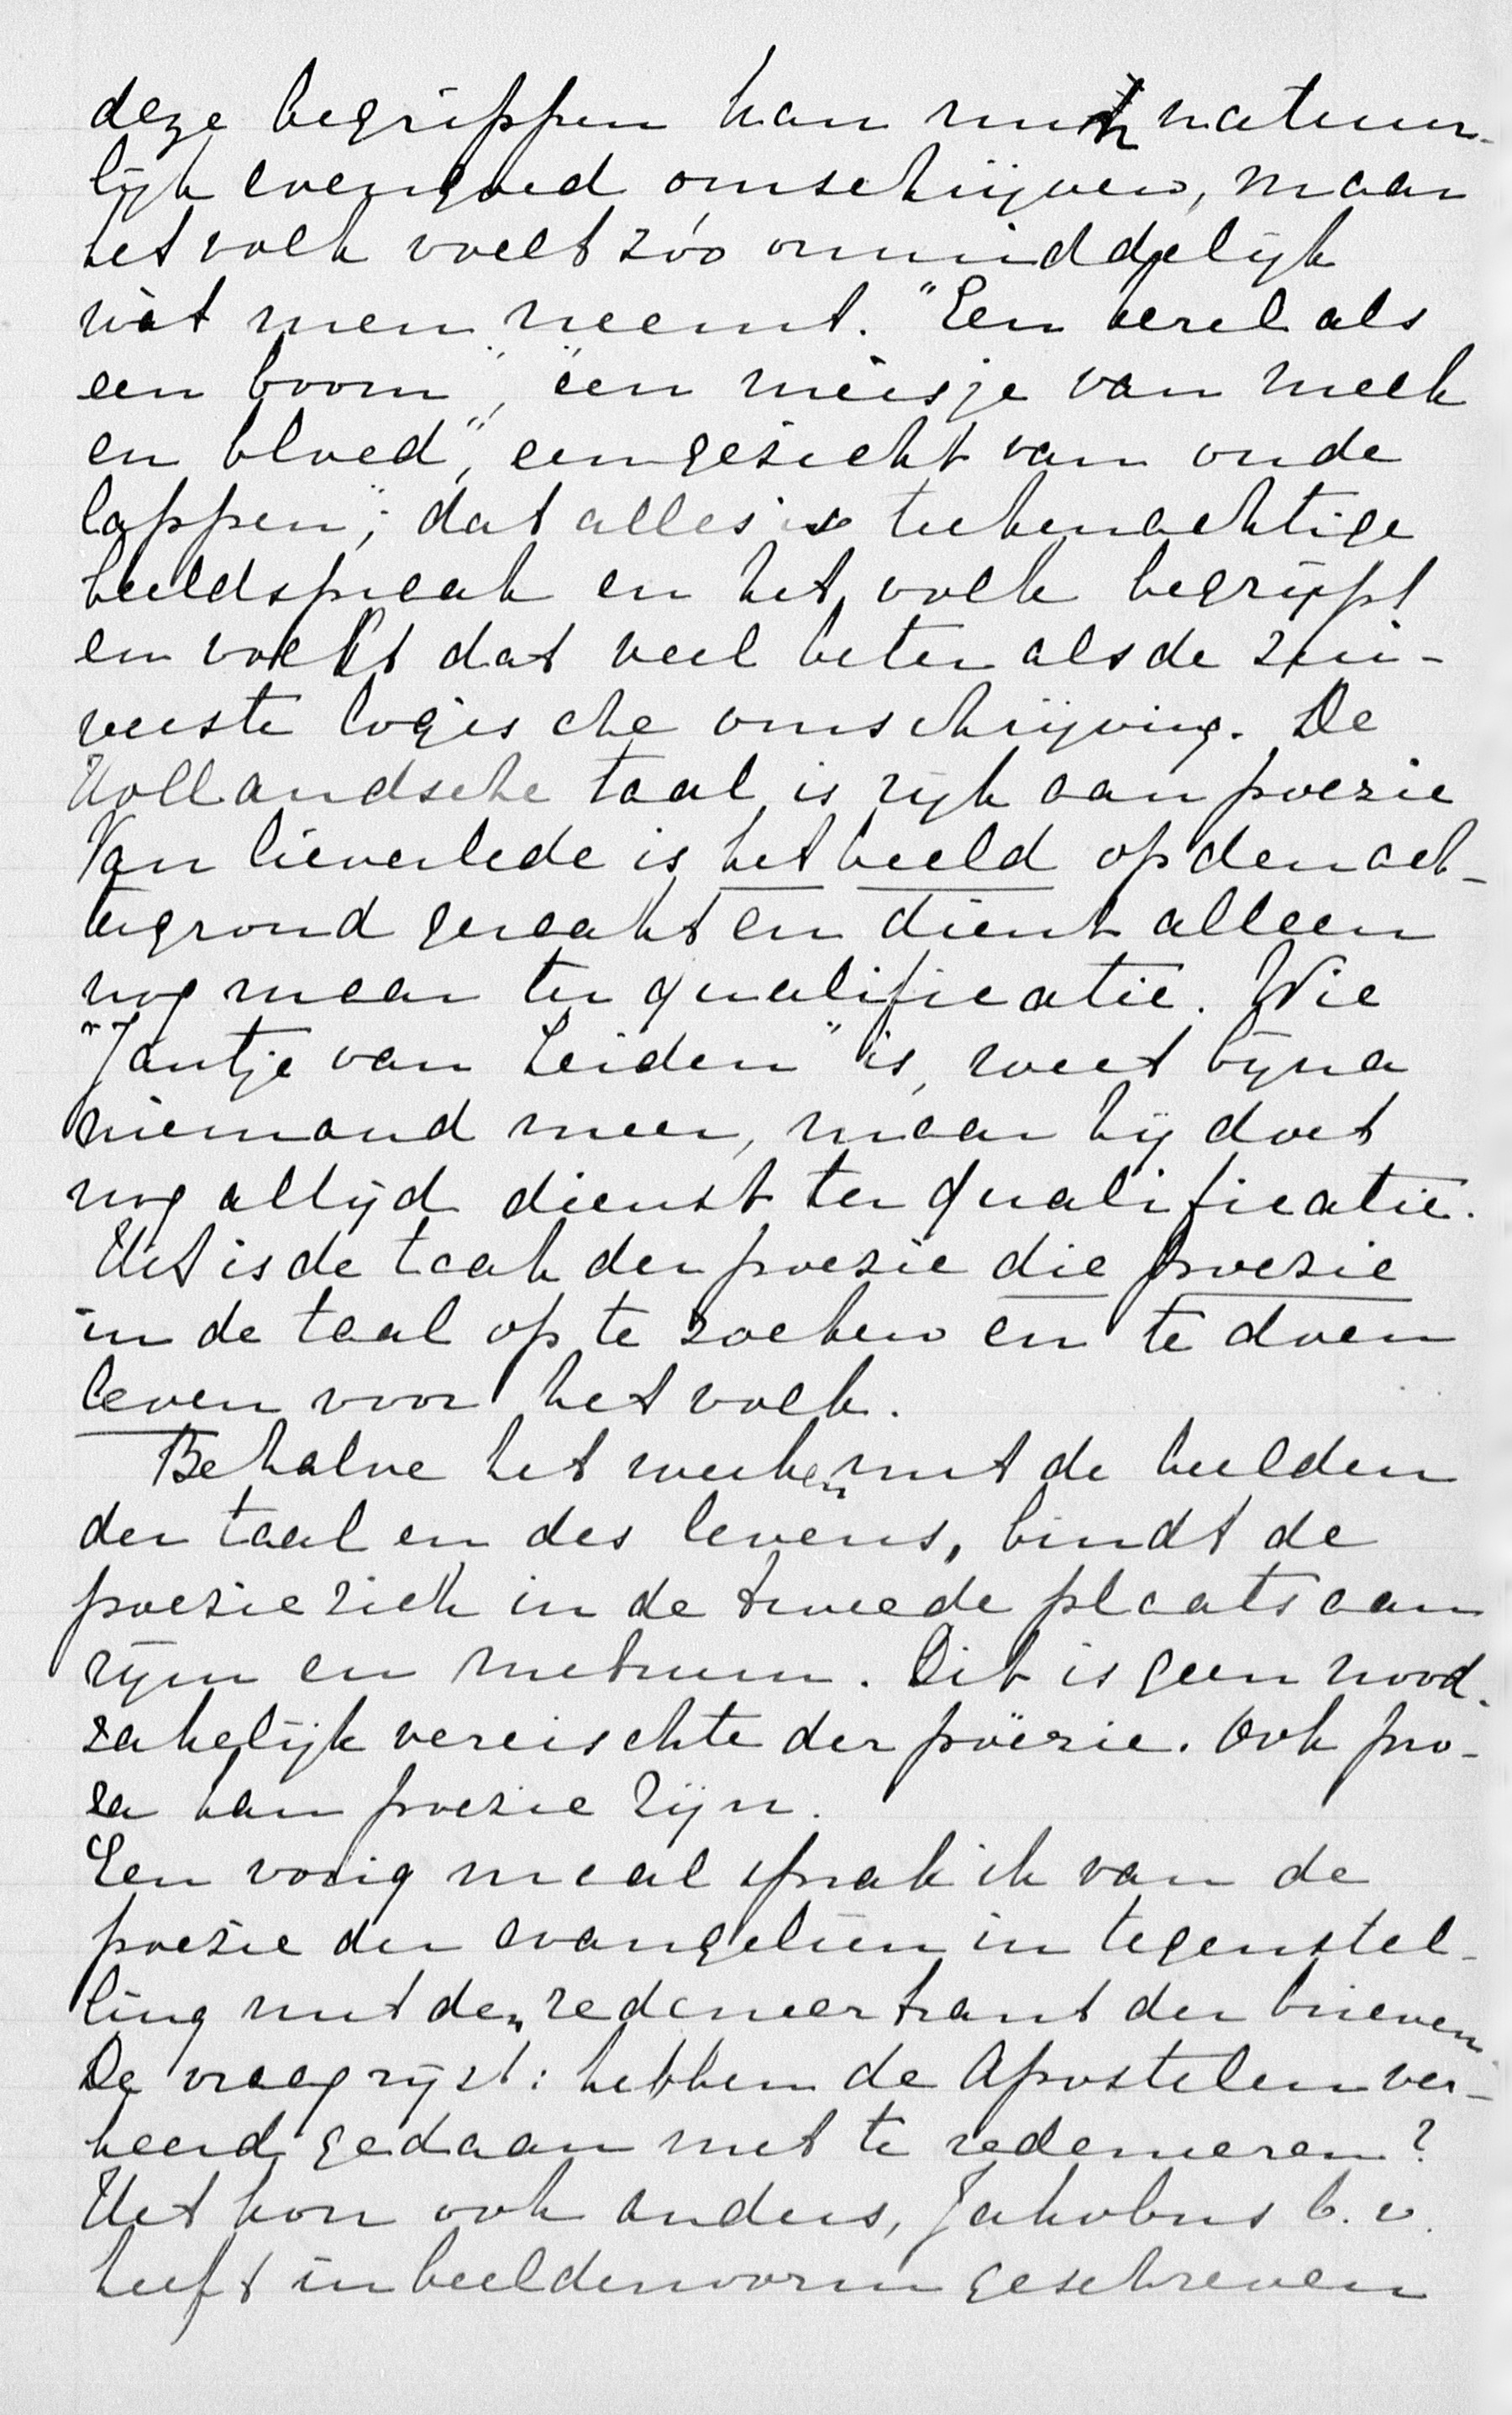 deze begrippen kan men natuur-
lijk evengoed omschrijven, maar
het volk voelt zóó onmiddelijk
wàt men neemt. "Een kerel als
een boom", "een meisje van melk
en bloed", een gezicht van oude
lappen"; dat alles is teekenachtige
beeldspraak en het volk begrijpt
en voelt dat veel beter als de zui-
verste logische omschrijving. De
Hollandsche taal is rijk aan poezie
Van lieverlede is het beeld op den ach-
tergrond geraakt en dient alleen
nog maar ter qualificatie. Wie
"Jantje van Leiden" is, weet bijna
niemand meer, maar hij doet
nog altijd dienst ter qualificatie.
Het is de taak der poezie die poezie
in de taal op te zoeken en te doen
leven voor het volk.
Behalve het werken met de beelden
der taal en des levens, bindt de
poezie zich in de tweede plaats aan
rijm en metrum. Dit is geen nood-
zakelijk vereischte der poëzie. Ook pro-
za kan poezie zijn.
Een vorig maal sprak ik van de
poezie der evangeliën in tegenstel-
ling met den redeneertrant der brieven
De vraag rijst: hebben de Apostelen ver-
keerd gedaan met te redeneeren?
Het kon ook anders, Jakobus b.v.
heeft in beeldenvorm geschreven